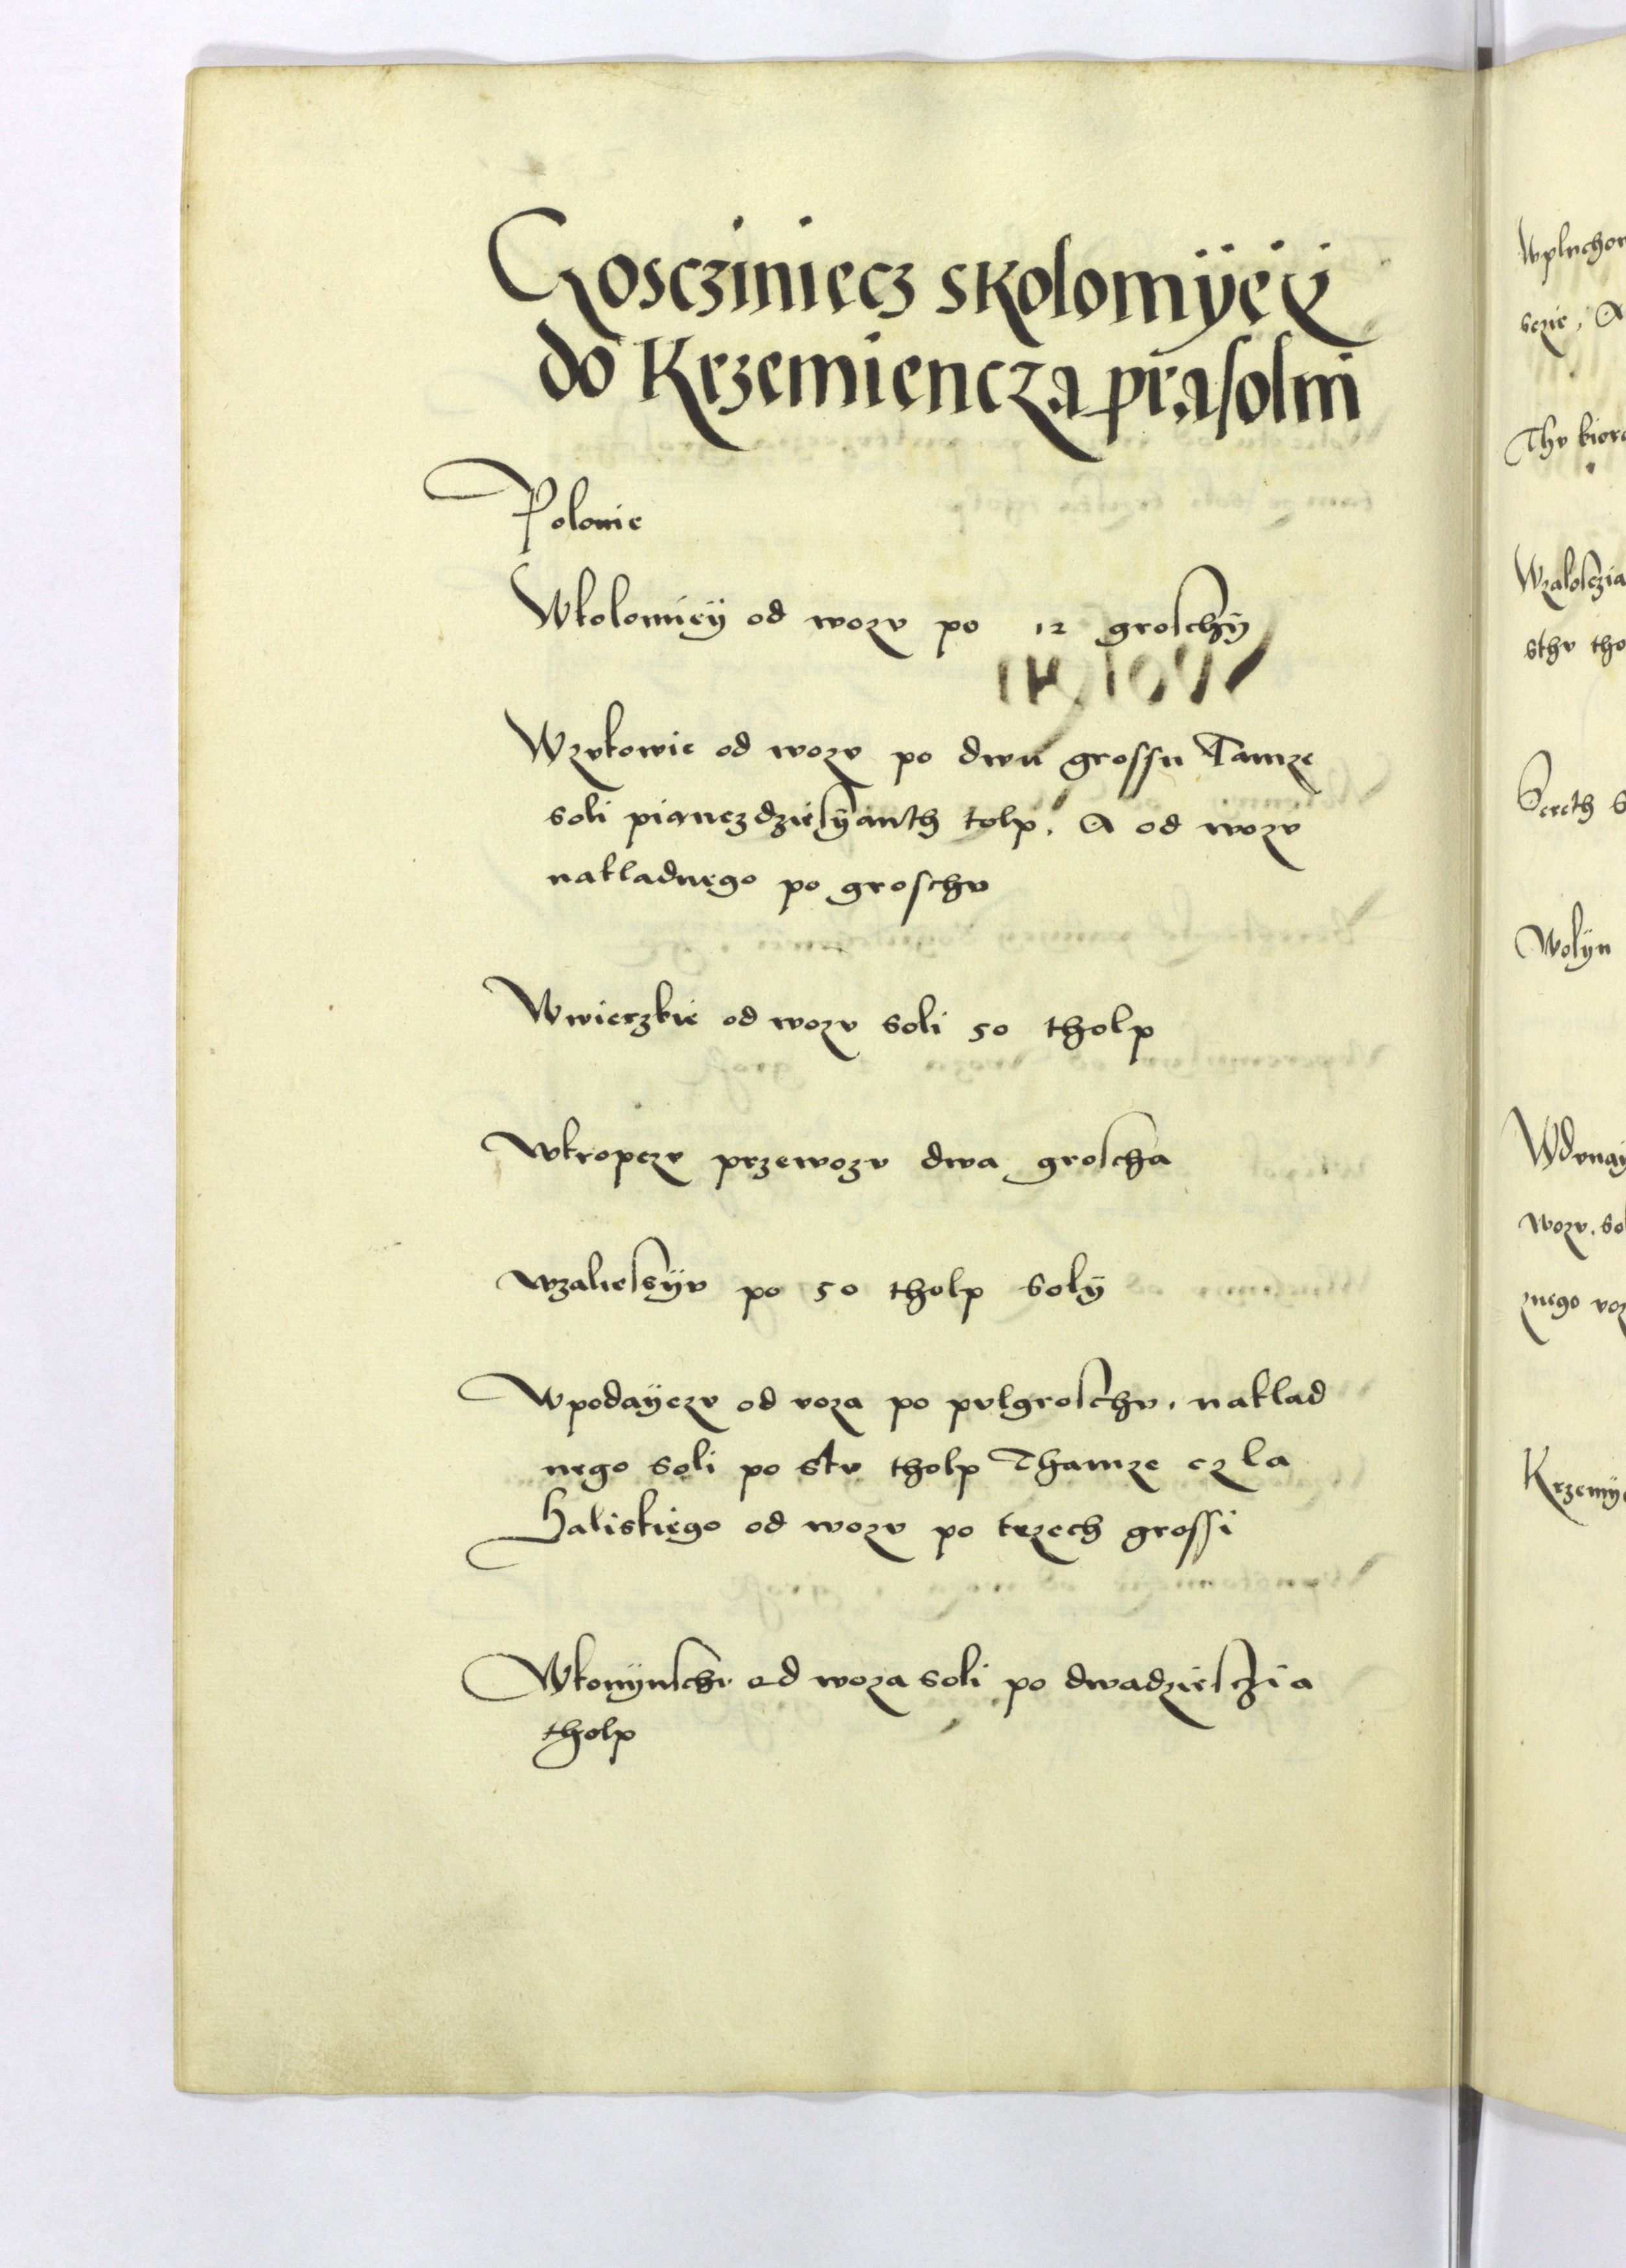 Goscziniecz skolomÿeÿ
do Krzemiencza prasolm
Polonie
Wkolomieÿ od wozv po 12 groschÿ
Wzvkowie od wozv po dwu grossu Tamze
soli pianczdziesÿanth tolp. A od wozv
nakladnego po groschv
Wwierzbie od wozv soli 50 tholp
Wkropczv przewozv dwa groscha
Wzaliesÿv po 50 tholp solÿ
Wpodaÿczv od voza po pvlgroschv. naklad
nego soli po stv tholp Thamze czla
Haliskiego od wozv po trzech grossi
od woza soli po dwadziesczia
tholp
Wpluchow
sczie, A
Thv biora
Wzalosczia
sthv tho
Sereth s
Wolÿn
Wdvnaÿ
wozv. sol
znego voz
Krzemÿe